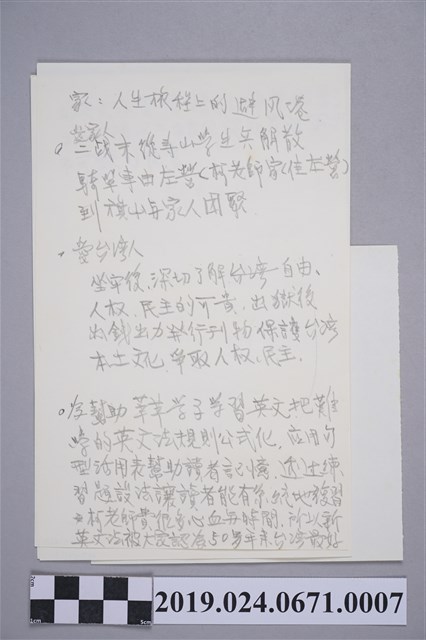 家：人生旅程上的避风港
愛家人
。二战末從壽山学生兵解散
騎单車由左營(柯老師家住左營)
到旗山与家人团聚
愛台湾人
坐牢後，深切了解台湾自由、
人权、民主的可貴，出獄後
出錢出力發行刊物保護台湾
本土文化、爭取人权、民主。
。為幫助莘莘学子学習英文把難
学的英文法規則公式化，应用句
型活用表幫助讀者記憶，透过練
習題設法讓讀者能有系統地複習
柯老師費很多心血与時間，所以新
英文法被大家認為50多年来台湾最好
2cm
1cm
5cm
2019.024.0671.0007